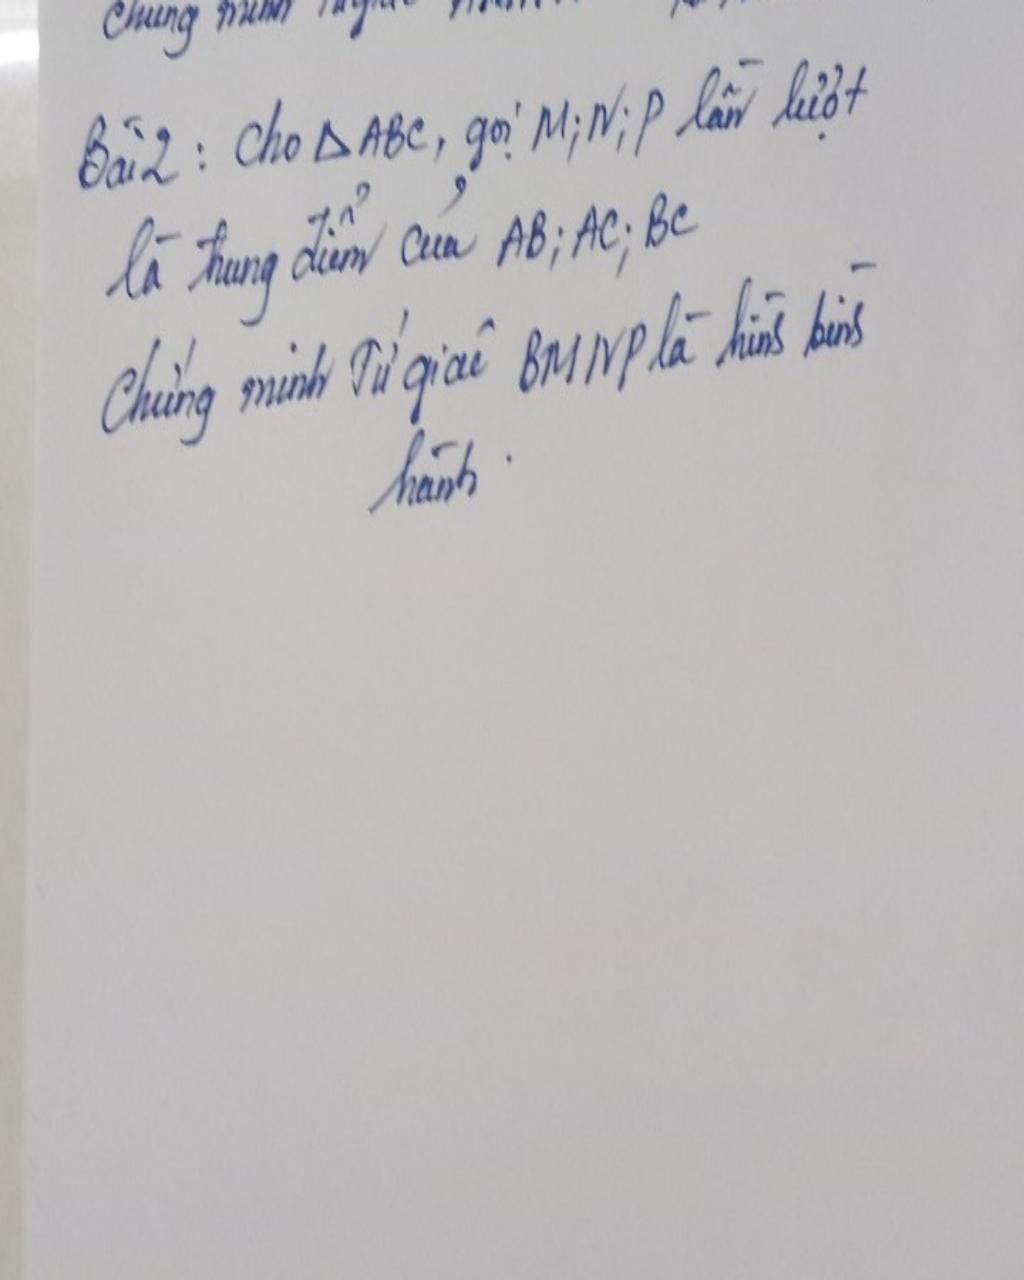 Chứng minh Tứ giác
Bài 2: Cho Δ ABC, gọi M; N; P lần lượt
là trung điểm của AB; AC; BC
Chứng minh Tứ giác BMNP là hình bình
hành.